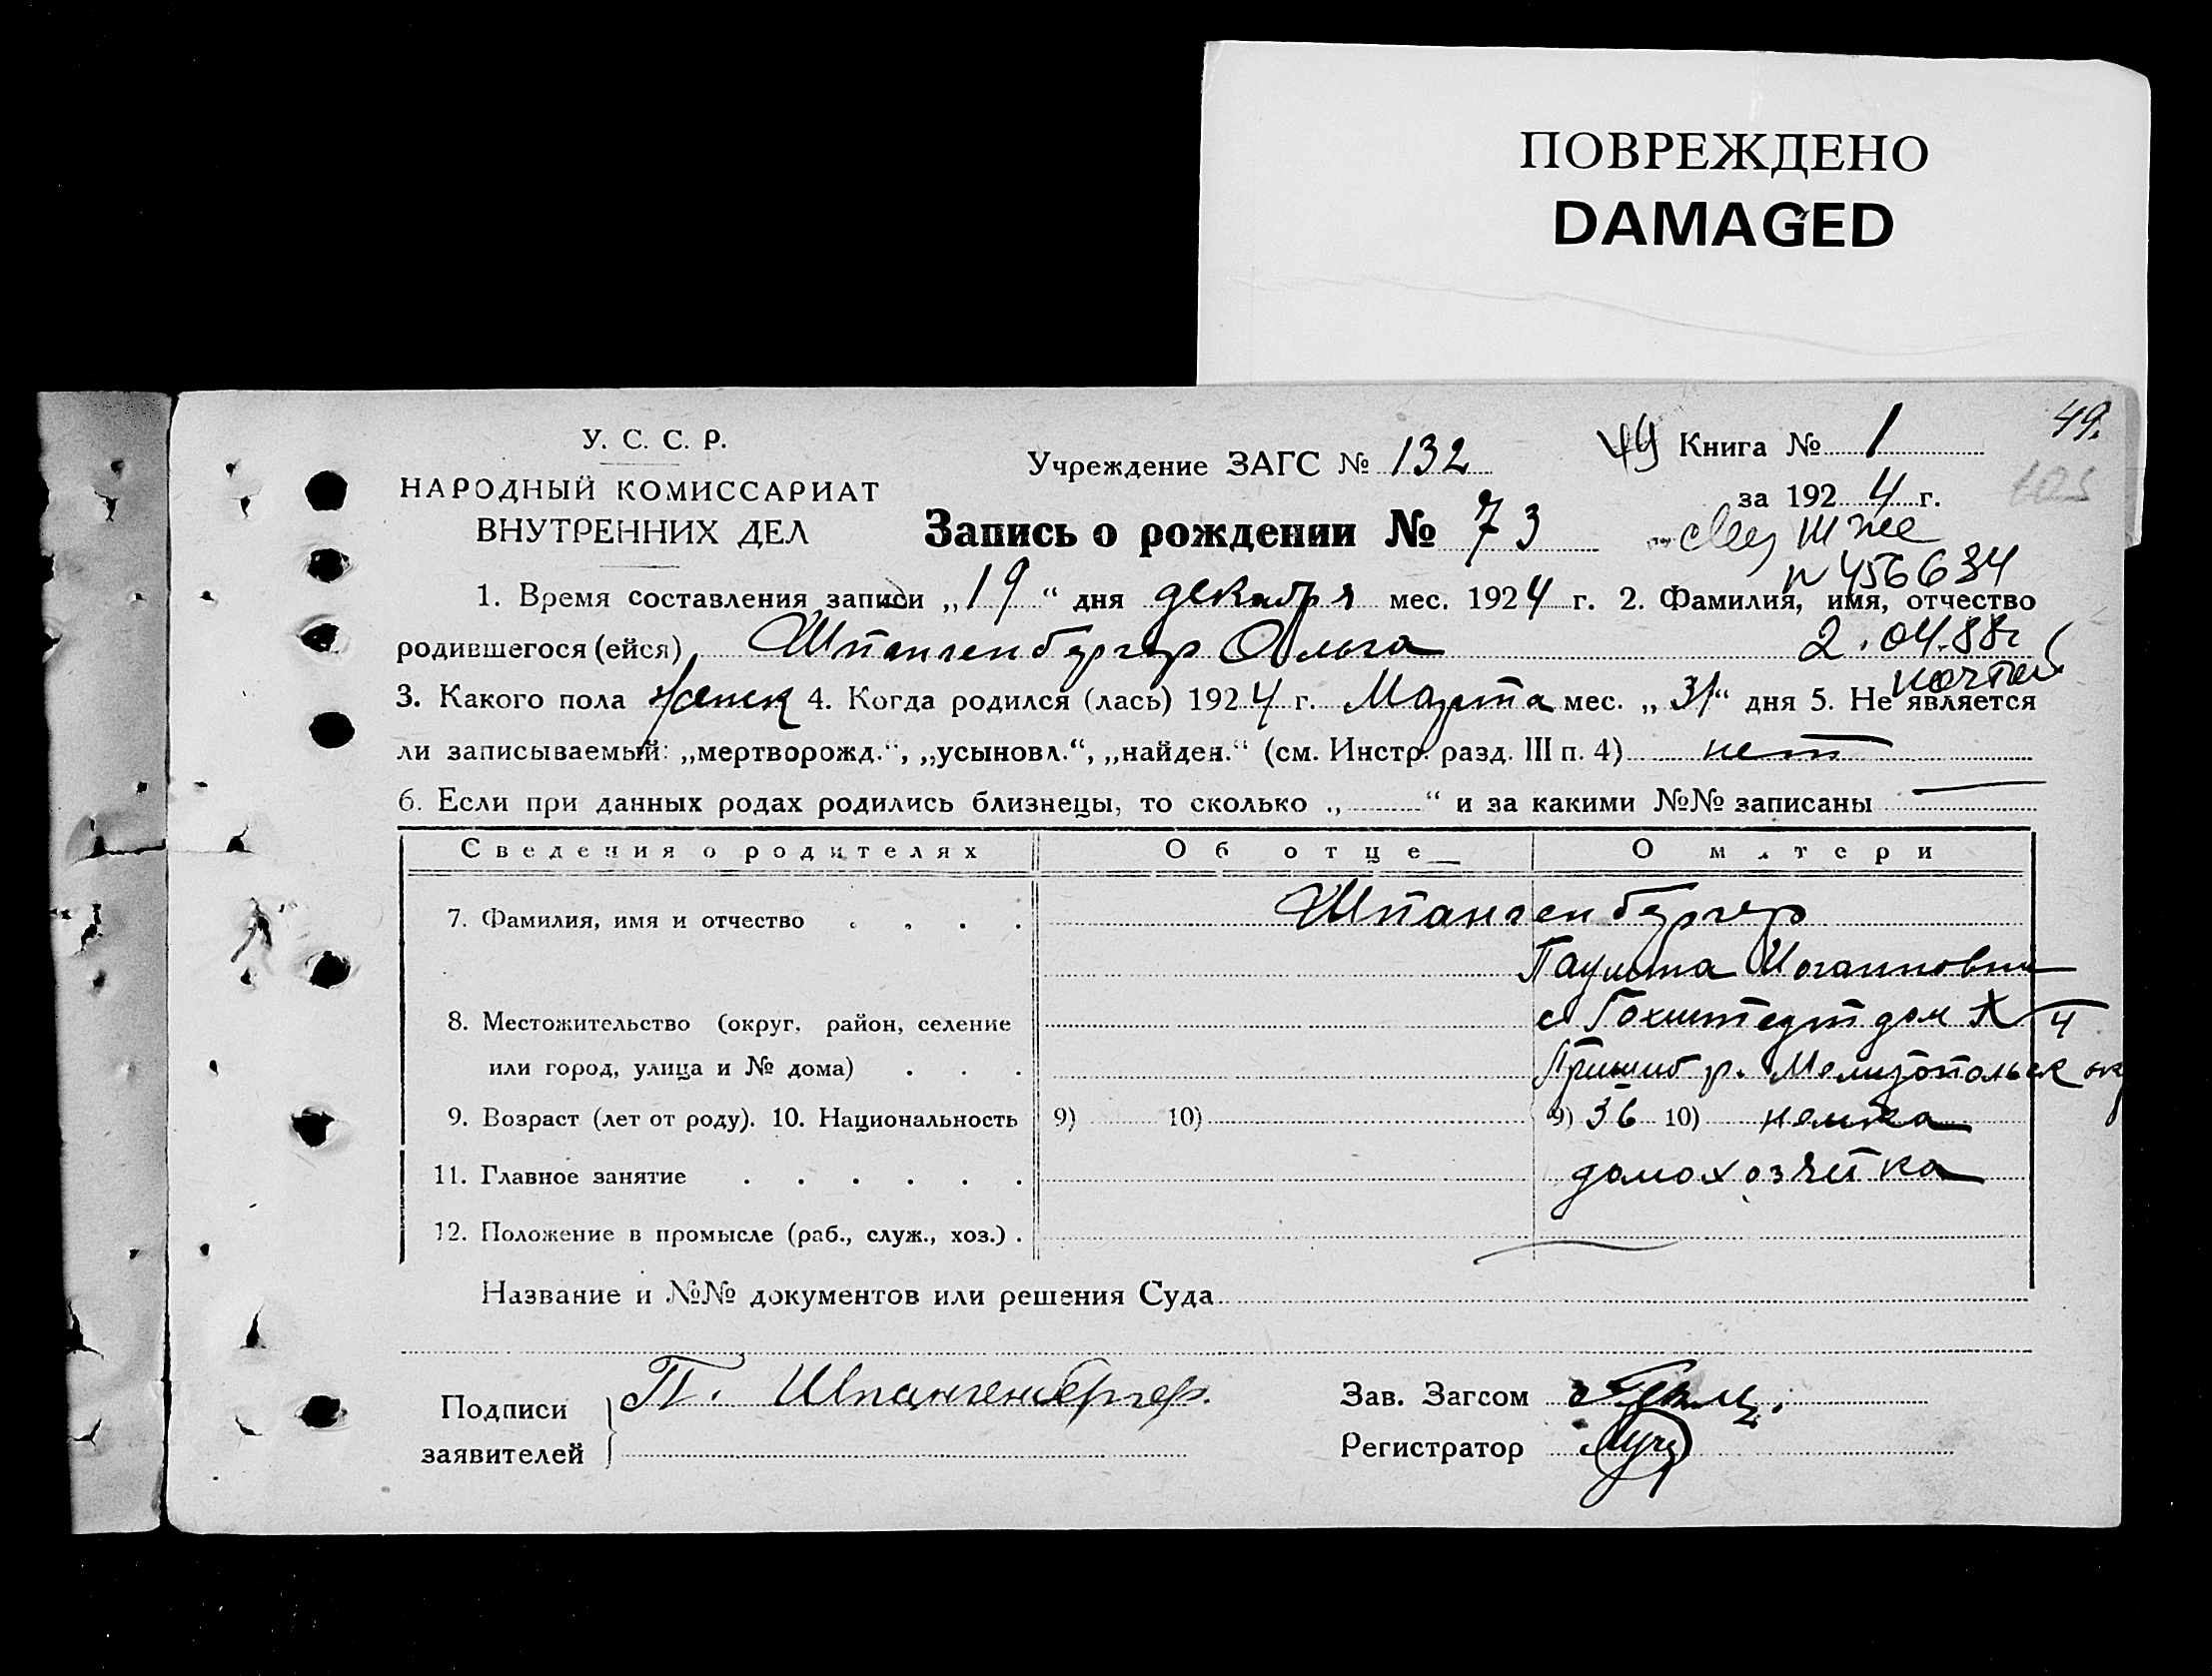 ПОВРЕЖДЕНО
DAMAGED
49.
У. С. С. Р.
НАРОДНЫЙ КОМИССАРИАТ
ВНУТРЕННИХ ДЕЛ
Учреждение ЗАГС № 132
49 Книга № 1
за 1924 г.
Запись о рождении № 73
N 456634
1. Время составления записи „19“ дня декабря мес. 1924 г. 2. Фамилия, имя, отчество
родившегося (ейся) Шпангенбергер Ольга 2.04.88г
3. Какого пола женск 4. Когда родился (лась) 1924 г. Марта мес. „31“ дня 5. Не является
ли записываемый: „мертворожд.“, „усыновл.“, „найден.“ (см. Инстр. разд. III п. 4) нет
6. Если при данных родах родились близнецы, то сколько „ “ и за какими №№ записаны —
Сведения о родителях Об отце О матери
7. Фамилия, имя и отчество Шпангенбергер
Паулина Иоганновна
8. Местожительство (округ, район, селение с Гохштедт дом № 4
или город, улица и № дома) Пришиб р. Мелитопольск ок
9. Возраст (лет от роду). 10. Национальность 9) 10) 9) 36 10) немка
11. Главное занятие домохозяйка
12. Положение в промысле (раб., служ., хоз.) —
Название и №№ документов или решения Суда
Подписи заявителей П. Шпангенбергер.
Зав. Загсом
Регистратор